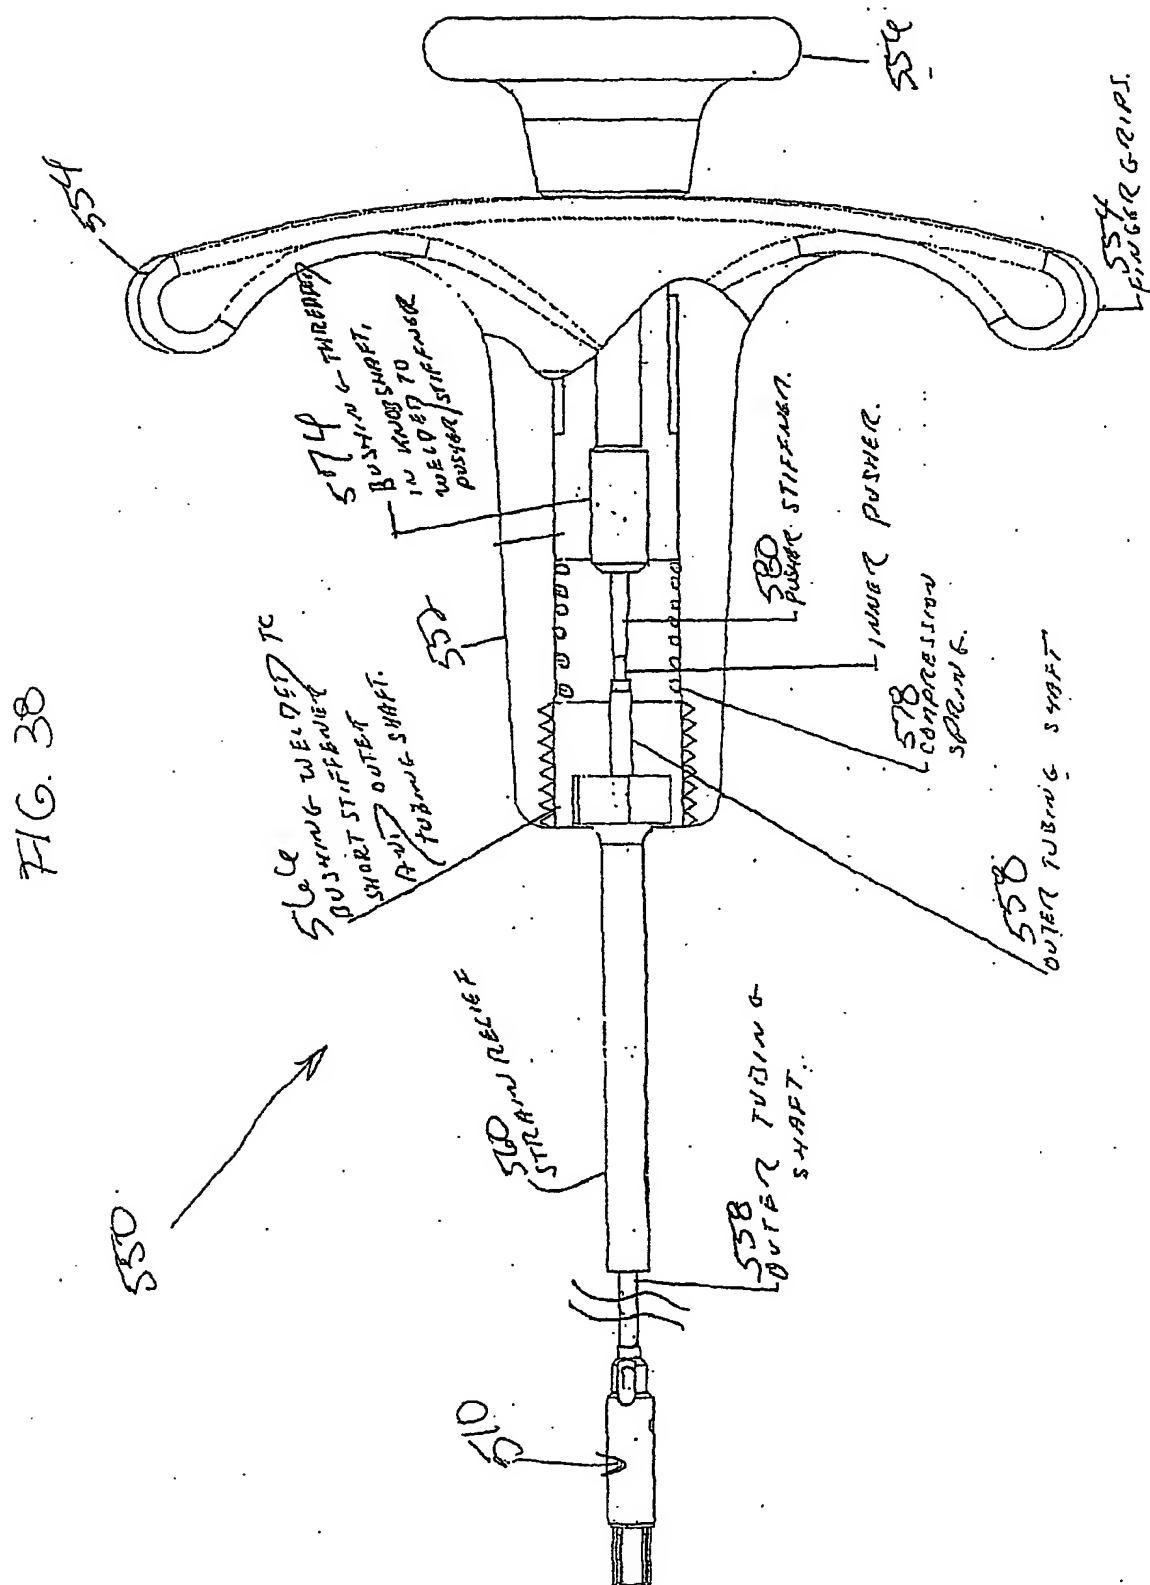 FIG. 38
550
510
558
OUTER TUBING
SHAFT.
560
STRAIN RELIEF
566
BUSHING WELDED TO
SHORT STIFFENER
AND OUTER
TUBING SHAFT.
552
574
BUSHING THREDED
IN KNOB SHAFT,
WELDED TO
PUSHER/STIFFENER
554
556
554
FINGER GRIPS.
580
PUSHER STIFFENER.
INNER PUSHER.
578
COMPRESSION
SPRING.
558
OUTER TUBING SHAFT